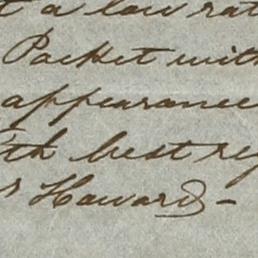 t a low rat
Packet with
appearance
th best reg
s Howard -